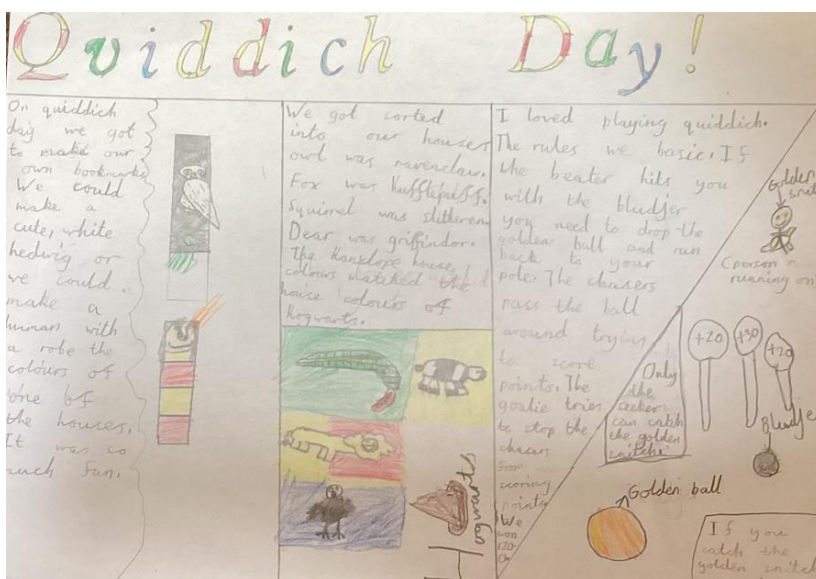 Quiddich Day!
On quiddich
day we got
to make our
own bookmarks
We could
make a
cute, white
hedwig or
we could.
make a
human with
a robe the
colours of
one of
the houses.
It was so
much fun.
We got corted
into our houses
owl was ravenclaw.
Fox was hufflepuff.
Squirrel was slitheren
Dear was griffindor.
The house
colours matched the
house colours of
hogwarts.
Hogwarts
I loved playing quiddich.
The rules we basic. If
the beater hits you
with the bludjer
you need to drop the
golden ball and run
back to your
pole. The chasers
pass the ball
around trying
to score
points. The
goalie tries
to stop the
chasers
from
scoring
points
We
won
Only
the
seeker
can catch
the golden
snitch.
Golden
(person
running
+20
+30
+20
Bludje
Golden ball
If you
catch the
golden snitch